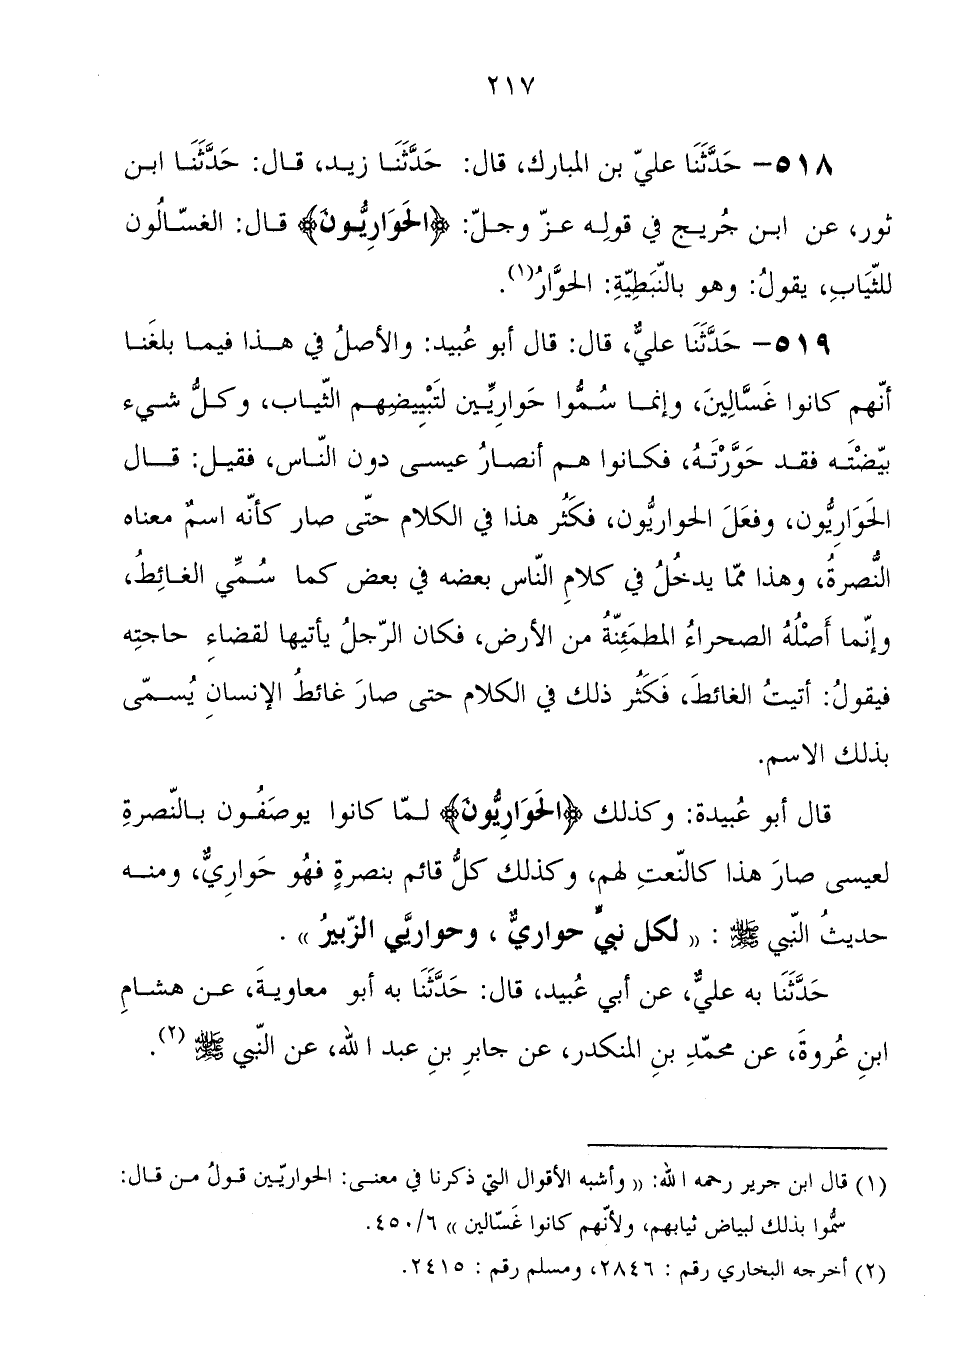 ٢١٧
٥١٨– حَدَّثَنَا عليّ بن المبارك، قال: حَدَّثَنَا زيد، قال: حَدَّثَنَا ابن
ثور، عن ابن جُريج في قولِه عزّ وجلّ: ﴿الحَوَارِيُّونَ﴾ قال: الغسّالُون
للثّيَابِ، يقولُ: وهو بالنَّبَطِيّةِ: الحوَّارُ(١).
٥١٩– حَدَّثَنَا عليٌّ، قال: قال أبو عُبيد: والأصلُ في هذا فيما بلغَنا
أنّهم كانوا غَسَّالِينَ، وإنما سُمُّوا حَوارِيِّين لتَبْيِيضِهِم الثّياب، وكلُّ شيء
بيّضْتَه فقد حَوَّرْتَهُ، فكانوا هم أنصارُ عيسى دون النّاس، فقيل: قال
الحَوَارِيُّون، وفعَلَ الحواريُّون، فكَثُر هذا في الكلام حتّى صار كأنّه اسمٌ معناه
النُّصرةُ، وهذا ممّا يدخُلُ في كلامِ النّاس بعضه في بعض كما سُمِّي الغائِطُ،
وإنّما أَصْلُهُ الصحراءُ المطمَئِنّةُ من الأرض، فكان الرّجلُ يأتيها لقضاءِ حاجتِه
فيقولُ: أتيتُ الغائطَ، فَكَثُر ذلك في الكلام حتى صارَ غائطُ الإنسانِ يُسمّى
بذلك الاسم.
قال أبو عُبيدة: وكذلك ﴿الحَوَارِيُّونَ﴾ لمّا كانوا يوصَفُون بالنّصرةِ
لعيسى صارَ هذا كالنّعتِ لهم، وكذلك كلُّ قائم بنصرةٍ فهُو حَواريٌّ، ومنه
حديثُ النّبي ﷺ : « لكل نبيٍّ حواريٌّ ، وحواريَّي الزّبيرُ » .
حَدَّثَنَا به عليٌّ، عن أبي عُبيد، قال: حَدَّثَنَا به أبو معاويةَ، عن هشامِ
ابنِ عُروةَ، عن محمّدِ بنِ المنكدر، عن جابرِ بنِ عبد الله، عن النّبي ﷺ (٢).
(١) قال ابن جرير رحمه الله: « وأشبه الأقوال التي ذكرنا في معنى: الحواريّين قولُ من قال:
سمُّوا بذلك لبياض ثيابهم، ولأنّهم كانوا غَسّالين » ٤٥٠/٦.
(٢) أخرجه البخاري رقم : ٢٨٤٦، ومسلم رقم : ٢٤١٥.